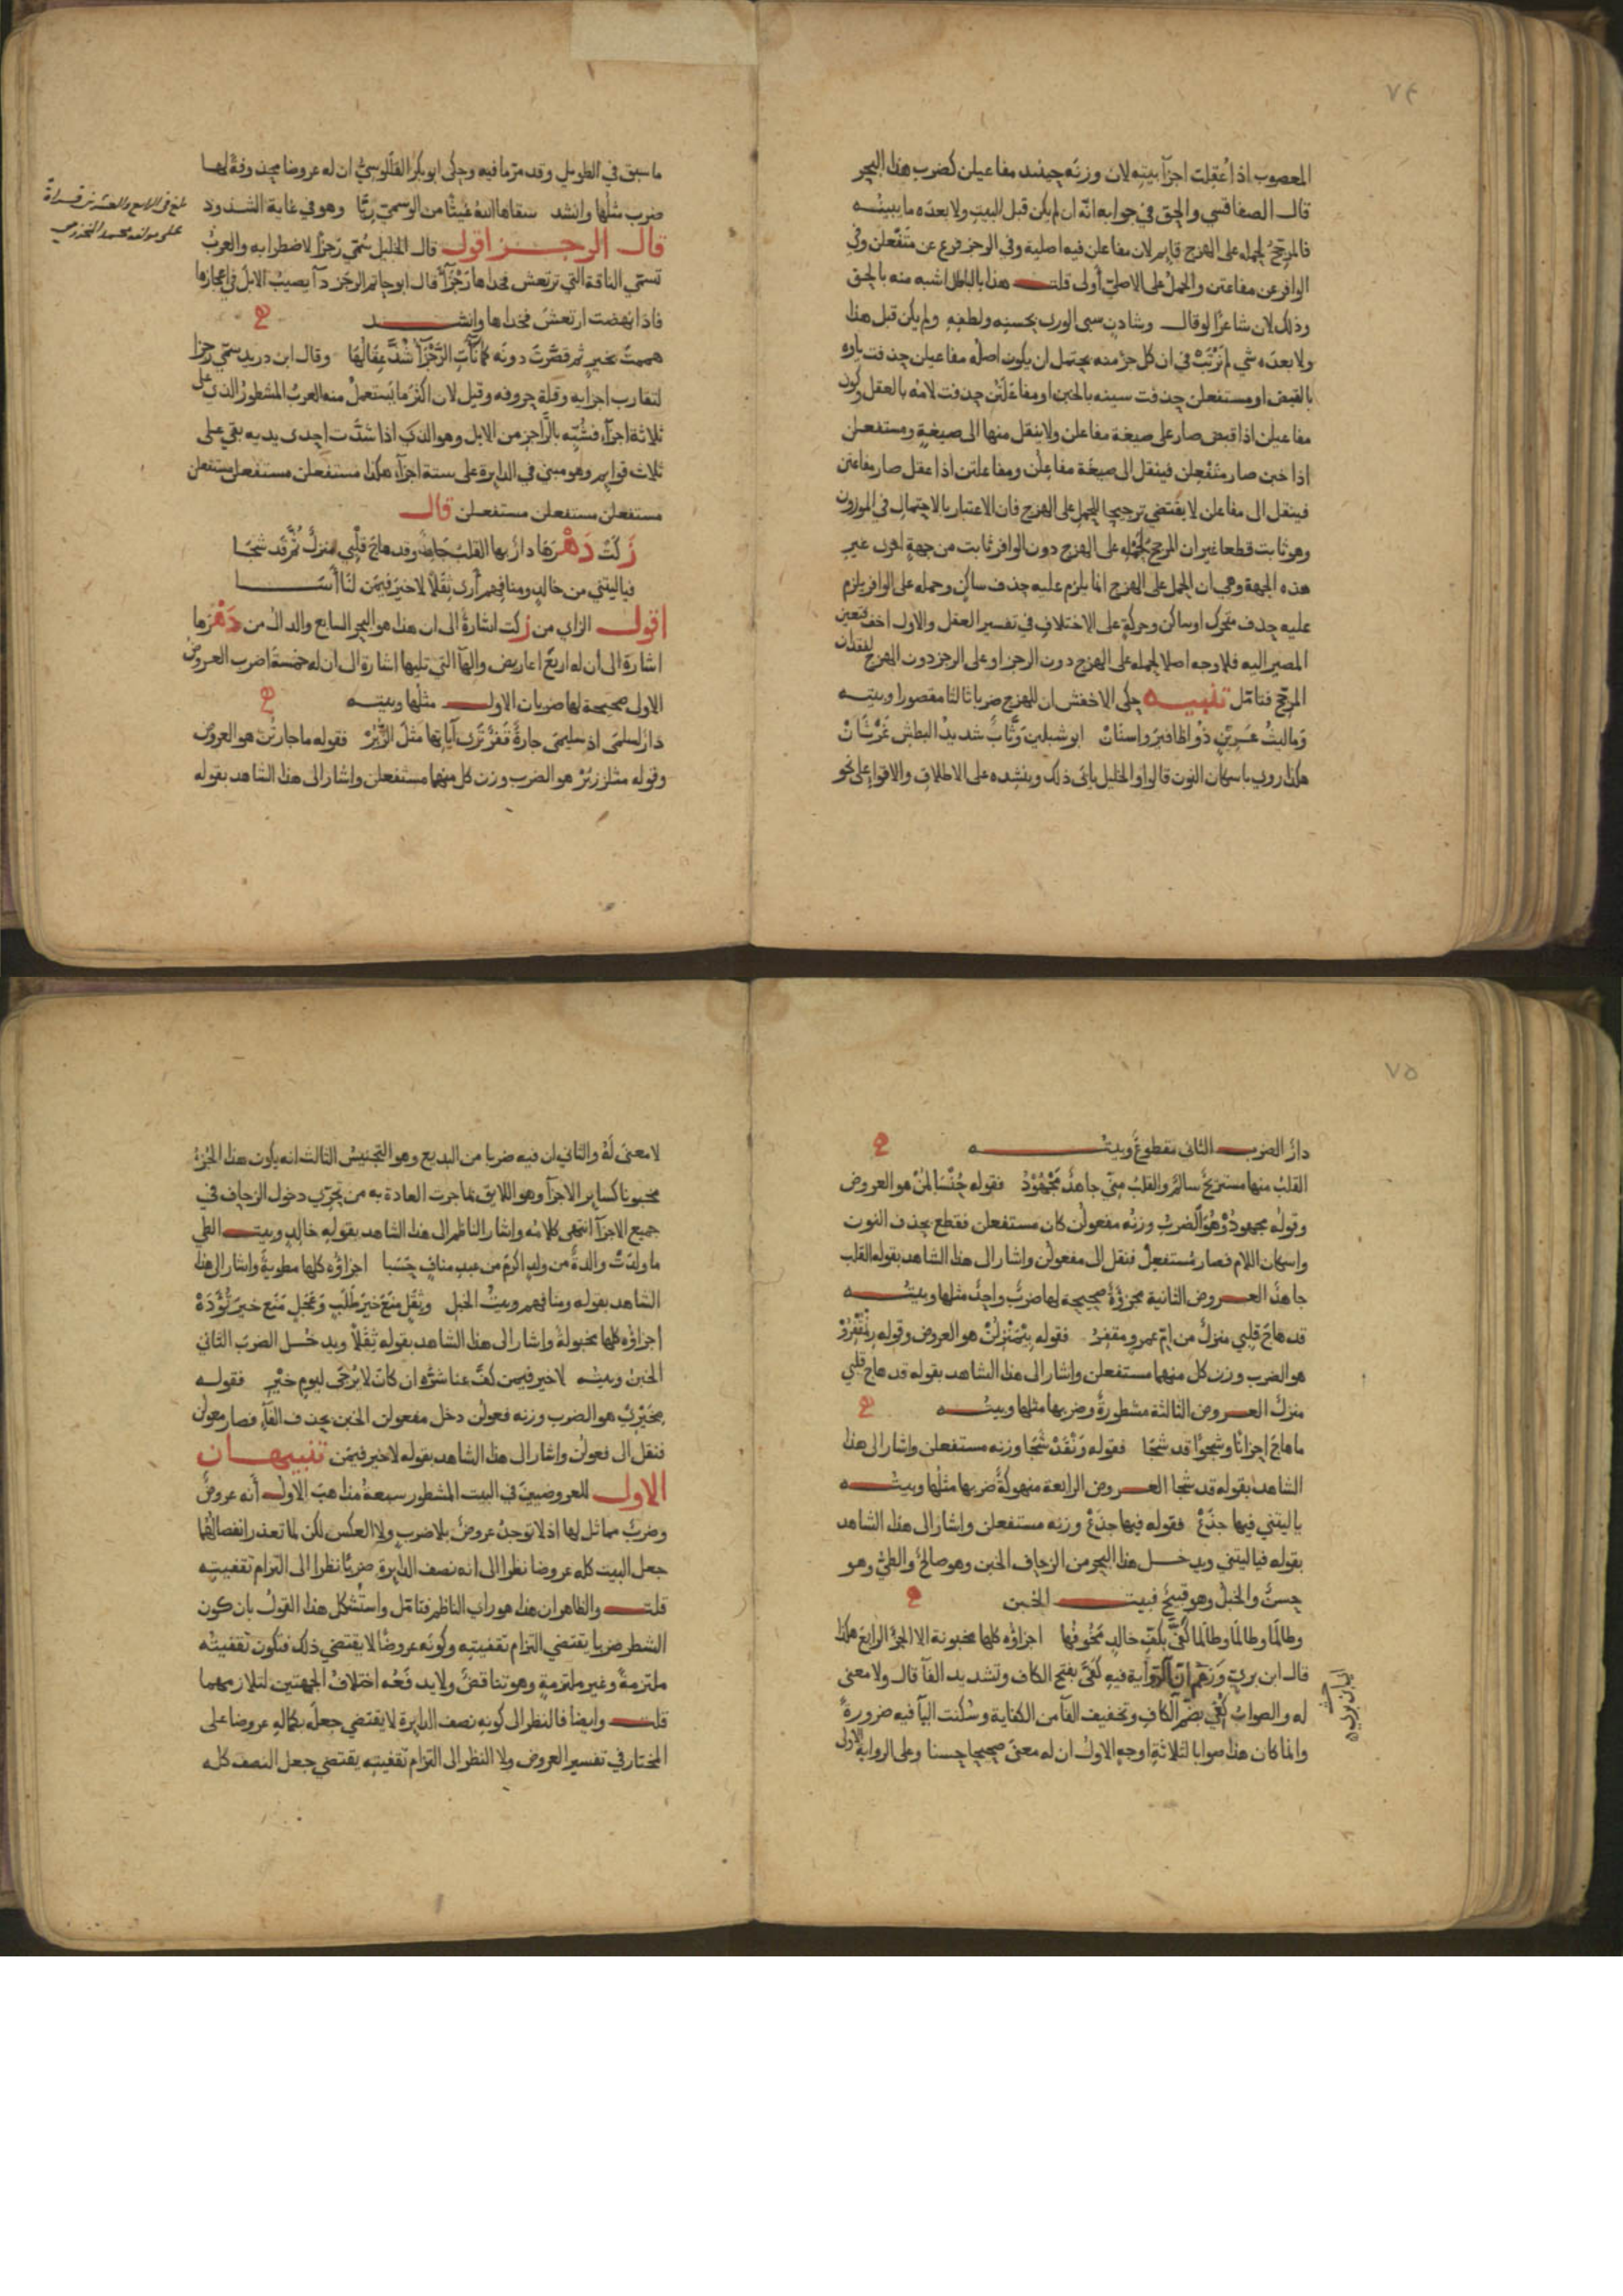 ٧٤
المعصوب اذا عُقِلت اجزآ بيتِه لان وزنَه حينئذ مفاعيلن كضرب هذا البحر
قال الصفاقسي والحق في جوابه انّه ان لم يكن قبل البيت ولا بعده ما يبيّنُه
فالمرجّحُ لحمله على الهزج قايم لان مفاعلن فيه اصلية وفي الرجز فرع عن متَفْعلن وفي
الوافر عن مفاعتن والحمل على الاصليّ أولى قلت هذا بالباطل اشبه منه بالحق
وذلك لان شاعرًا لو قال وشادنٍ سبى الورى بحسنِه ولطفِه ولم يكن قبل هذا
ولا بعدَه شي لم نَرْتَبْ في ان كل جزء منه يحتمل ان يكون اصلُه مفاعيلن حذفت ياؤه
بالقبض او مستفعلن حذفت سينه بالخبن او مفاعَلَتن حذفت لامُه بالعقل وكون
مفاعيلن اذا قبض صار على صيغة مفاعلن ولا ينقل منها الى صيغةٍ ومستفعلن
اذا خبن صار متَفْعِلن فينقل الى صيغة مفاعلن ومفاعلتن اذا عقل صار مفاعتن
فينقل الى مفاعلن لا يقتضي ترجيحا للحمل على الهزج فان الاعتبار بالاحتمال في الموزون
وهو ثابت قطعا غير ان المرجح لحمله على الهزج دون الوافر ثابت من جهةٍ اخرى غير
هذه الجهة وهي ان الحمل على الهزج انما يلزم عليه حذف ساكنٍ وحمله على الوافر يلزم
عليه حذف متحرك او ساكن وحركةٍ على الاختلاف في تفسير العقل والاول اخف فتعين
المصير اليه فلا وجه اصلا لحمله على الهزج دون الرجز او على الرجز دون الهزج لفقدان
المرجح فتامّل تنبيه حكى الاخفش ان للهزج ضربا ثالثا مقصورا وبيتُه
وَما ليثُ عَرِينٍ ذُو اظافيرَ واسنَانْ ابو شبلين وَثَّابٌ شديدُ البطش غَرْثَانْ
هكذا روى باسكان النون قالوا والخليل يابى ذلك وينشده على الاطلاق والاقوا على نحو
ما سبق في الطويل وقد مرّ ما فيه وحكى ابو بكر القلّلوسيُّ ان له عروضا محذوفة لها
ضرب مثلُها وانشد سقاها اللهُ غيثًا من الوسمِيّ رِيَّا وهو في غاية الشذوذ
قال الرجز اقول قال الخليل سُمّي رَجزًا لاضطرابه والعربُ
تسمّي الناقة التي ترتعش فخذاها رَجْزَآ قال ابو حاتم الرجَز دآ يصيبُ الابل في اعجازها
فاذا نهضت ارتعشَ فخذاها وانشد
هممتَ بخيرٍ ثم قصَّرتَ دونَه كما نآتِ الرَّجْزَا شُدَّ عِقَالُهَا وقال ابن دريد سمّي رَجزا
لتقارب اجزايه وقلة حروفه وقيل لان اكثرَ ما تَستعملُ منه العربُ المشطورُ الذي على
ثلاثة اجزآءٍ فشُبّه بالرَّاجز من الابل وهو الذي اذا شدّت احدى يديه بقي على
ثلاث قوايم وهو مبني في الدايرة على ستة اجزآء هكذا مستفعلن مستفعلن مستفعلن
مستفعلن مستفعلن مستفعلن قال
زَكَتْ دَهْرَها دارٌ بها القلبُ جَاهدٌ وقد هاجَ قلبي منزلٌ ثُمَّ قد شَجَا
فياليتني من خالدٍ ومنافِهم أَرى ثِقَلًا لا خيرَ فيمَن لنَا أَسَا
اقول الزاي من زكت اشارةٌ الى ان هذا هو البحر السابع والدال من دَهْرَها
اشارة الى أن له اربعَ اعاريض والهآ التي تليها اشارة الى ان له خمسةَ اضرب العروض
الاولى صحيحة لها ضربان الاول مثلُها وبيتُه
دَارٌ لسلمَى اذ سليمَى جارةٌ قَفْرٌ تَرَى آياتِها مثلَ الزُّبُرْ فقوله ما جارتُنْ هو العروض
وقوله مثلززبُرْ هو الضرب وزن كل منهما مستفعلن واشار الى هذا الشاهد بقوله
بلغ في الرابع والعشرين قراءة
على مولفه محمد المخزومي
٧٥
دارٌ الضرب الثاني مقطوعٌ وبيتُه
القلبُ منها مستريحٌ سالمٌ والقلبُ منّي جاهدٌ مَجْهُودُ فقوله حُنْسَالمُنْ هو العروض
وقوله مجهودُوْ هُوَ الضربُ وزنُه مفعولن كان مستفعلن فقطع بحذف النون
واسكان اللام فصار مُستفعلْ فنقل الى مفعولن واشار الى هذا الشاهد بقوله القلب
جاهدٌ العروض الثانية مجزوَّةٌ صحيحة لها ضربٌ واحدٌ مثلها وبيتُه
قد هاجَ قلبي منزلٌ من امّ عمرٍو مقفرُ فقوله بِيْمَنْزِلُنْ هو العروض وقوله رِنْمُقْفِرُوْ
هو الضرب وزن كل منهما مستفعلن واشار الى هذا الشاهد بقوله قد هاج قلبي
منزلٌ العروض الثالثة مشطورةٌ وضربها مثلها وبيتُه
ما هاجَ احزانًا وشجوًا قد شجَا فقوله وَنْقَدْ شَجَا وزنه مستفعلن واشار الى هذا
الشاهد بقوله قد شجَا العروض الرابعة منهوكةٌ ضربها مثلُها وبيتُه
ياليتني فيها جذَعْ فقوله فيها جذَعْ وزنه مستفعلن واشار الى هذا الشاهد
بقوله فياليتني ويدخل هذا البحر من الزحاف الخبن وهو صالحٌ والطيُّ وهو
حسنٌ والخبلُ وهو قبيحٌ فبيت الخبن
وطالَما وطالَما وطالَما كُفِيْ بكفِّ خالدٍ مَخُوفُها اجزاؤُه كلها مخبونة الا الجزَ الرابعَ هكذا
قال ابن بريّ وَزعم انّ الرّواية فيهِ كَفَّى بفتح الكاف وتشديد الفآ قال ولا معنى
له والصوابُ كُفِيْ بضَمّ الكافِ وتخفيف الفآ من الكفاية وسُكنت اليآ فيه ضرورةً
وانما كان هذا صوابا لثلاثة اوجهٍ الاولُ ان له معنىً صحيحا حسنا وعلى الرواية الاولى
لا معنَى لَهُ والثاني ان فيه ضربا من البديع وهو التجنيسُ الثالث انه يكون هذا الجُزءُ
مخبونا كسايرِ الاجزآ وهو اللايق بما جرت العادة به من تحرّي دخول الزحاف في
جميع الاجزآ انتهى كلامُه واشار الناظم الى هذا الشاهد بقولِه خالدٍ وبيت الطي
ما ولدَتْ والدةٌ من ولدٍ اكرمَ من عبدِ منافٍ حَسَبا اجزاؤُه كلها مطويةٌ واشار الى هذا
الشاهد بقوله ومنافِهم وبيتُ الخبل وثِقَلٍ منَعَ خيرَ طَلَبٍ وعَجَلٍ مَنَع خيرَ تُؤَدَهْ
اجزاؤُه كلها مخبولةٌ واشار الى هذا الشاهد بقوله ثِقَلًا ويدخل الضربَ الثاني
الخبنُ وبيتُه لا خير فيمن كفَّ عنا شرَّه ان كانَ لا يُرجَى ليومِ خَيْرِ فقوله
مِخَيْرِيْ هو الضرب وزنه فعولن دخل مفعولن الخبن بحذف الفآءِ فصار معولن
فنقل الى فعولن واشار الى هذا الشاهد بقوله لا خير فيمَن تنبيهان
الاول للعروضيينَ في البيت المشطور سبعةُ مذاهبَ الاول أنه عروضٌ
وضربٌ مماثل لها اذ لا توجدُ عروضٌ بلا ضربٍ ولا العكس لكن لما تعذر انفصالُهما
جعل البيت كله عروضا نظرا الى انه نصف الدايرة ضربًا نظرا الى التزام تقفيتِه
قلت والظاهر ان هذا هو راي الناظم فتامّل واستُشكل هذا القولُ بان كون
الشطر ضربا يقتضي التزام تقفيتِه وكونَه عروضًا لا يقتضي ذلك فتكون تقفيتُه
ملتزمةً وغير ملتزمةٍ وهو تناقضٌ ولا يدفَعُه اختلافُ الجهتين لتلازمهما
قلت وايضا فالنظر الى كونِه نصف الدايرة لا يقتضي جعلَه بكمالِه عروضا على
المختار في تفسير العروض ولا النظر الى التزام تقفيتِه يقتضي جعل النصف كله